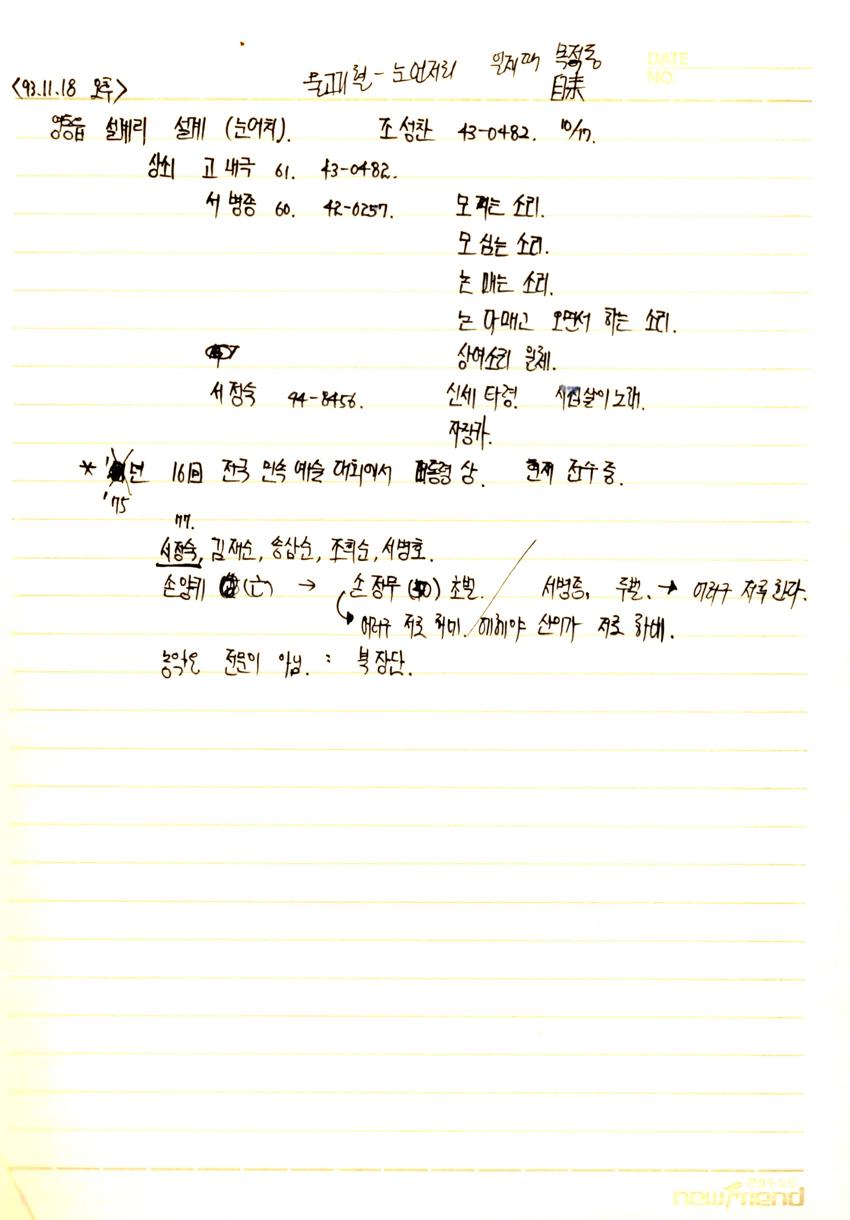 DATE
NO
물고기 혈 - 눈언저리 일제때 목적동
<93.11.18 오후> 自素
영동읍 설계리 설계 (눈어치). 조성찬 43-0482. 10/17.
상쇠 고내극 61. 43-0482.
서병종 60. 42-0257. 모찌는 소리.
모 심는 소리.
논 매는 소리.
논 다매고 오면서 하는 소리.
상여소리 일체.
서정숙 44-8456. 신세 타령. 시집살이 노래.
자장가.
* 년 16回 전국 민속 예술 대회에서 대통령 상. 현재 전수 중.
'75
77.
서정숙, 김재순, 송삼순, 조희순, 서병호.
손양기 (亡) → 손정무 초벌. / 서병종, 두벌. → 어러구 저루한다.
어러구 저로 하미. / 에헤야 산이가 저로 하네.
농악은 전문이 아님. : 북 장단.
newfriend